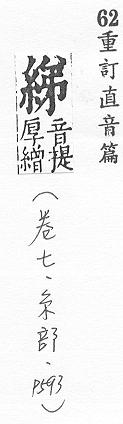 62重訂直音篇
綈
音提
厚繒
(卷七、糸部、P593)